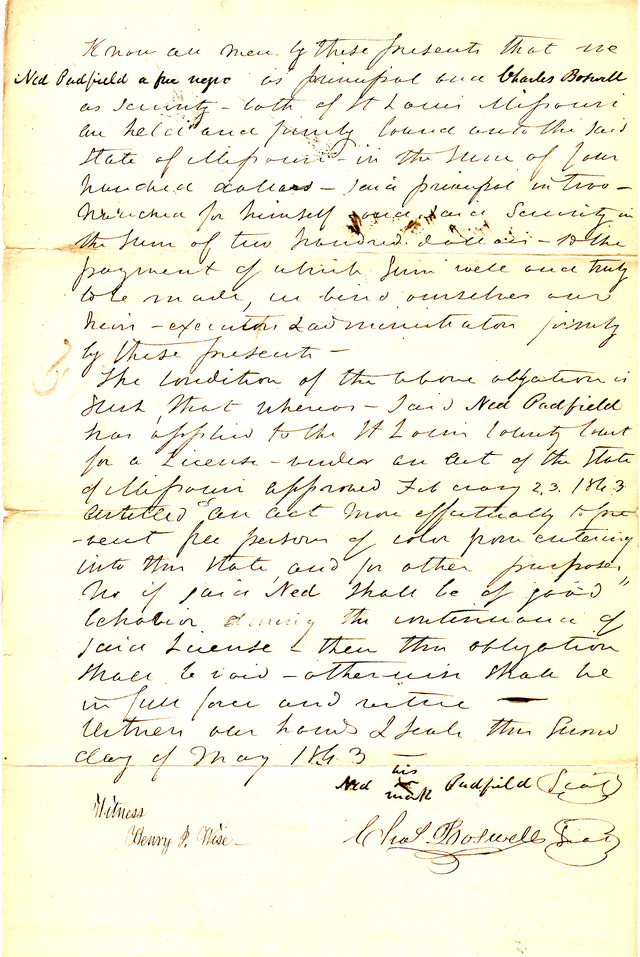 Know all men by these presents that we
Ned Padfield a free negro as principal and Charles Boswell
as Security - both of St Louis Missouri
are held and firmly bound unto the said
State of Missouri - in the Sum of four
hundred dollars - said principal in two -
hundred for himself and said Security in
the Sum of two hundred dollars - to the
payment of which Sum well and truly
to be made, we bind ourselves our
heirs - executors & administrators jointly
by these presents -
The condition of the above obligation is
Such, that whereas - said Ned Padfield
has applied to the St Louis County Court
for a License - under an act of the State
of Missouri approved February 23. 1843
entitled "an act more effectually to pre
-vent free persons of color from entering
into this State, and for other purposes"
No if said Ned Shall be of good
behavior during the continuance of
said License - then this obligation
Shall be void - otherwise Shall be
in full force and virtue -
Witness our hands & seals this Second
day of May 1843 -
his
Ned Padfield Seal
mark
Witness
Henry P. Wise -
Chas Boswell Seal